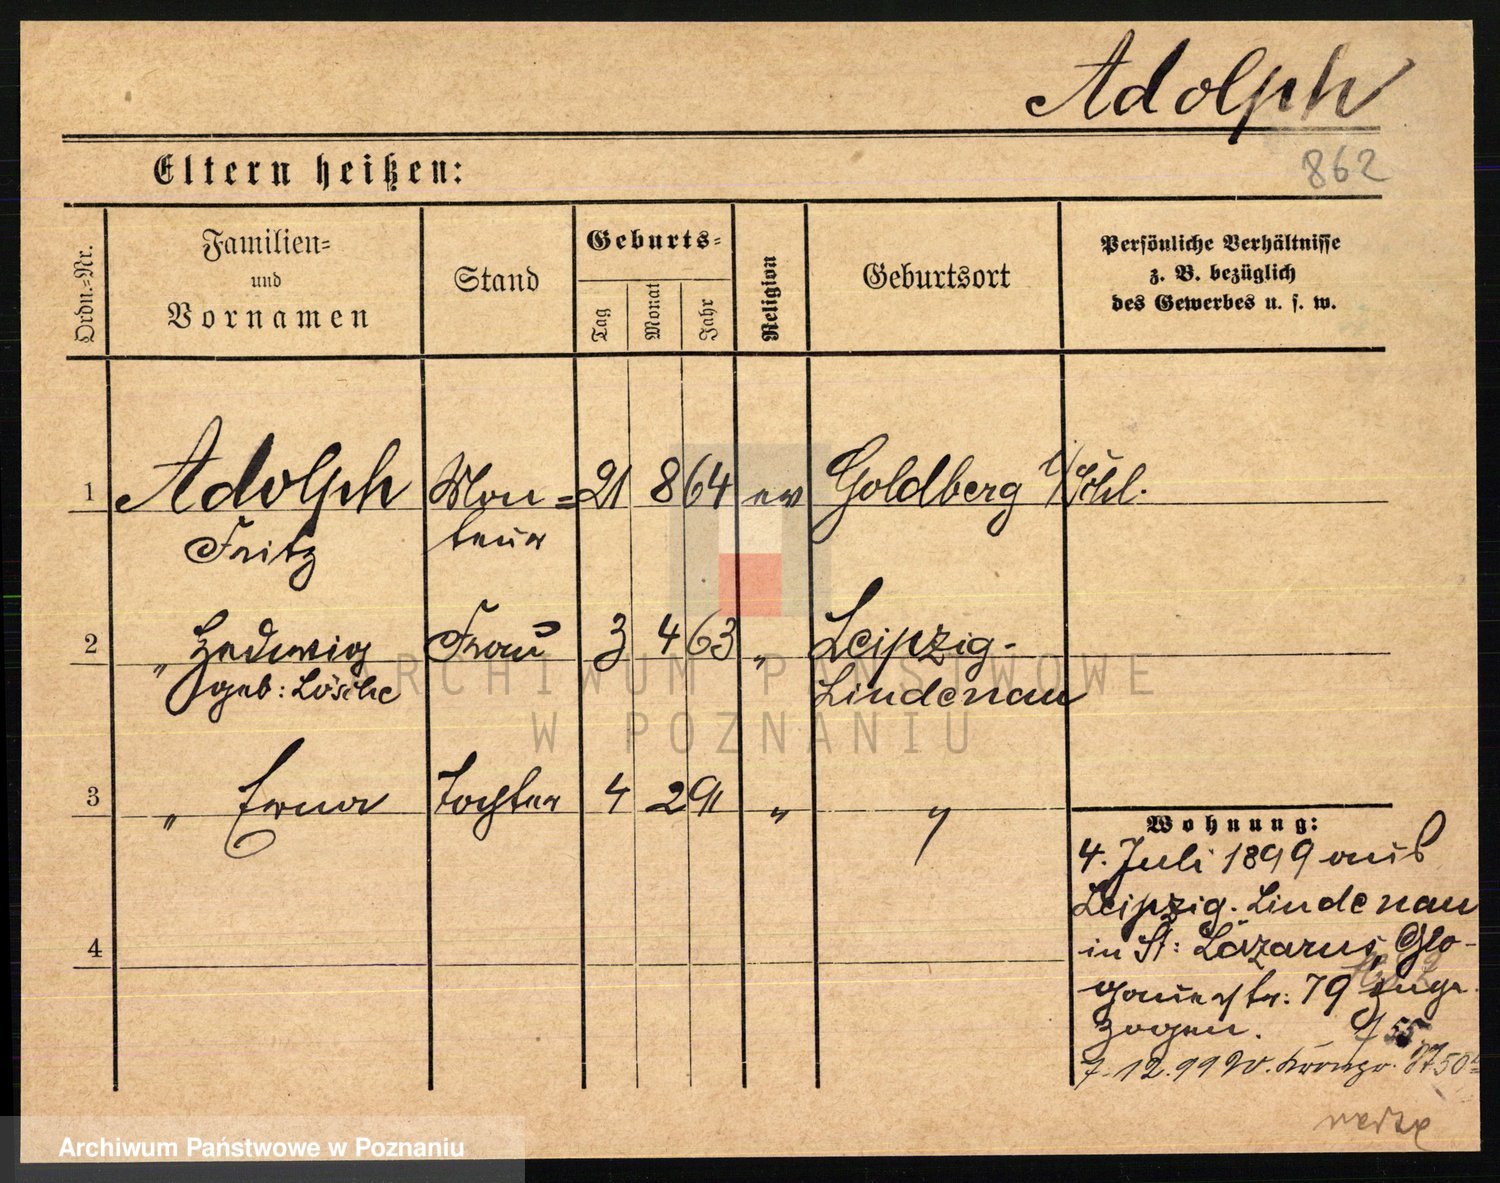 Adolph
862
Eltern heißen:
Ordn.-Nr.
Familien-
und
Vornamen
Stand
Geburts-
Tag
Monat
Jahr
Religion
Geburtsort
Persönliche Verhältnisse
z. B. bezüglich
des Gewerbes u. s. w.
1 Adolph Mon= 21 8 64 ev Goldberg i/Schl.
Fritz teur
2 " Hedwig Frau 3 4 63 " Leipzig-
geb: Lösche Lindenau
3 " Erna Tochter 4 2 91 " "
4
Wohnung:
4. Juli 1899 aus
Leipzig. Lindenau
in St: Lazarus, Glo-
gauerstr: 79 zuge
zogen. 55
7.12.99 n. Kronpr.
ARCHIWUM PAŃSTWOWE
W POZNANIU
Archiwum Państwowe w Poznaniu